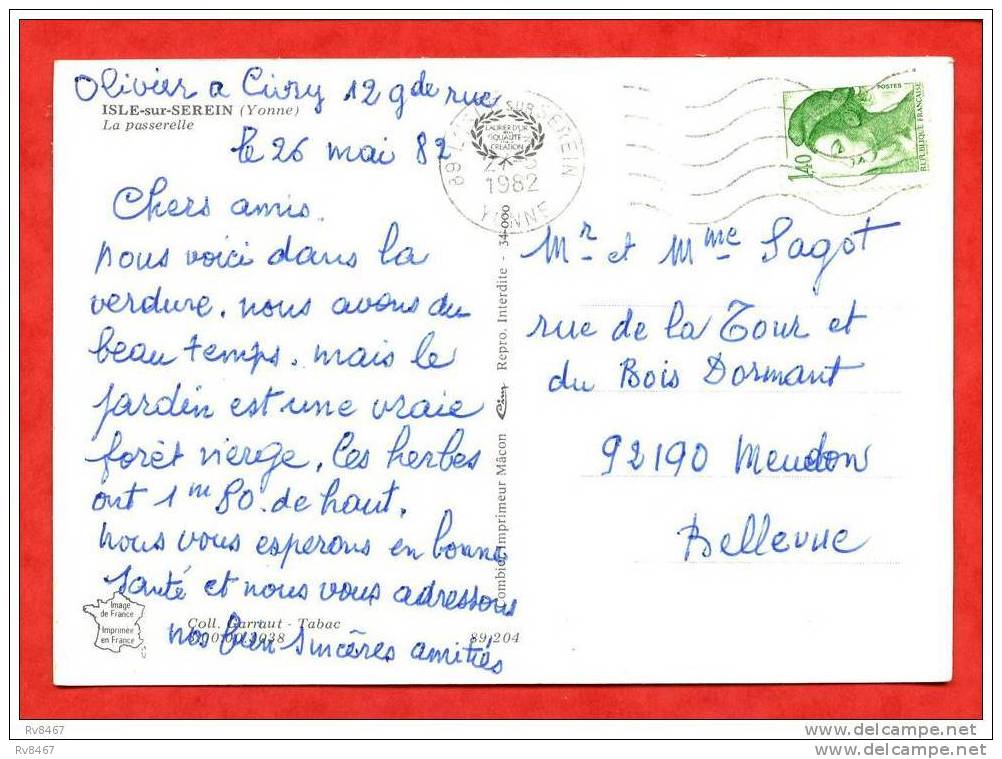 Olivier a Civry 12 gde rue
ISLE-sur-SEREIN (Yonne)
La passerelle
le 26 mai 82
Chers amis.
nous voici dans la
verdure. nous avons du
beau temps. mais le
jardin est une vraie
forêt vierge. les herbes
ont 1m 80. de haut.
nous vous esperons en bonne
santé et nous vous adressons
nos bien sincères amitiés
Image
de France
Imprimée
en France
Coll. Garraut - Tabac
89.204
Combier Imprimeur Mâcon
Repro. Interdite - 34-000
SUR SEREIN
LAURIER D'OR
QUALITÉ
CREATION
1982
YONNE
1,40
POSTES
REPUBLIQUE FRANÇAISE
Mr et Mme Sagot
rue de la Tour et
du Bois Dormant
92190 Meudon
Bellevue
Rv8467
Rv8467
www.delcampe.net
www.delcampe.net